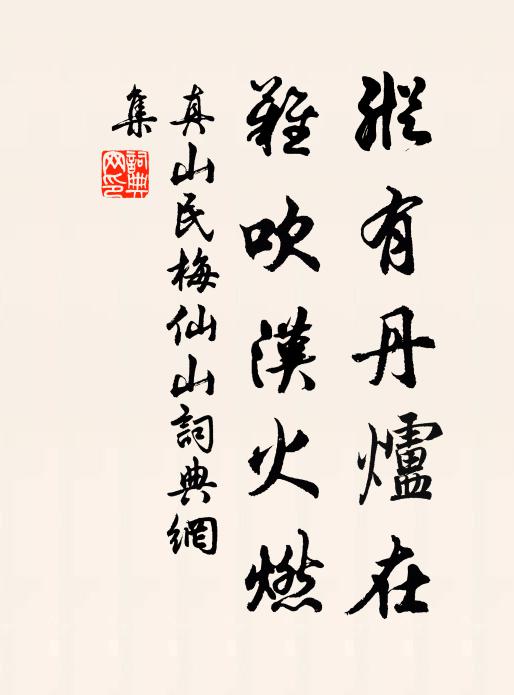 縱有丹爐在
難吹漢火燃
真山民梅仙山詞典網
集
詞典
网印